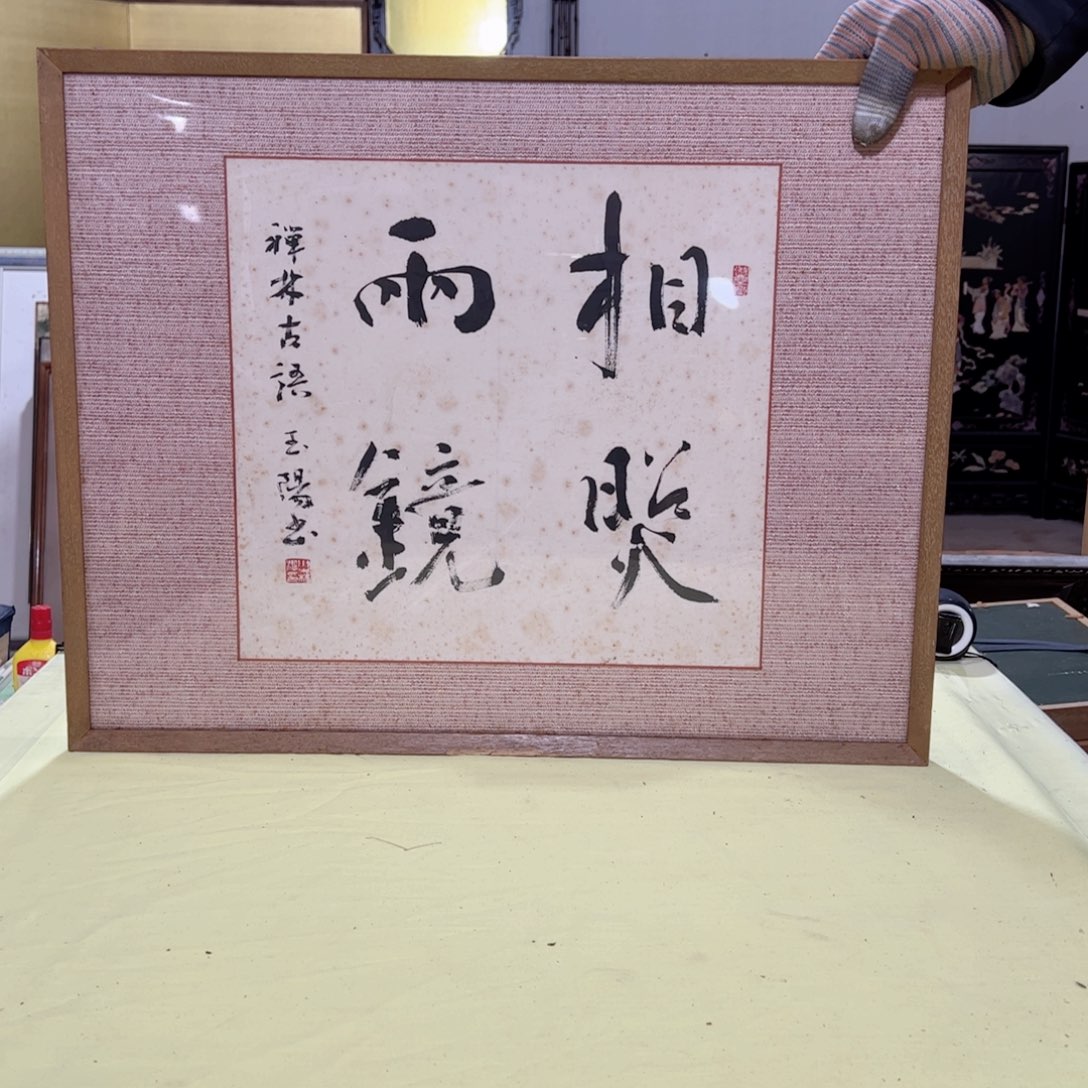 相照
兩鏡
禅林古語 玉陽書